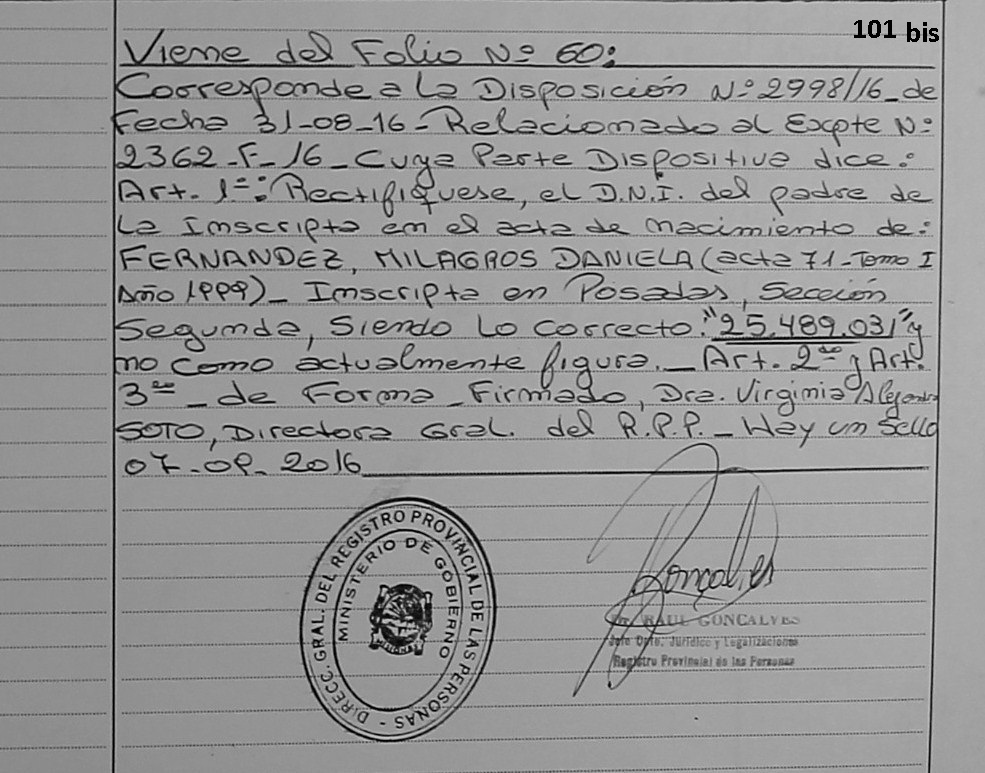 101 bis
Viene del Folio Nº 60:
Corresponde a la Disposición Nº 2998/16_ de
Fecha 31-08-16_ Relacionado al Expte Nº
2362-F-16_ Cuya Parte Dispositiva dice:
Art. 1º: Rectifíquese, el D.N.I. del padre de
la Inscripta en el acta de nacimiento de:
FERNANDEZ, MILAGROS DANIELA (acta 71_Tomo I
Año 1999)_ Inscripta en Posadas, Sección
Segunda, Siendo lo correcto: "25.489.031" y
no como actualmente figura._ Art. 2º y Art.
3º_ de Forma_ Firmado, Dra. Virginia Alejandra
SOTO, Directora Gral. del R.P.P._ Hay un Sello
07-09-2016
D.RECC. GRAL. DEL REGISTRO PROVINCIAL DE LAS PERSONAS -
MINISTERIO DE GOBIERNO
Goncalves
RAUL GONCALVES
Jefe Dpto. Jurídico y Legalizaciones
Registro Provincial de las Personas